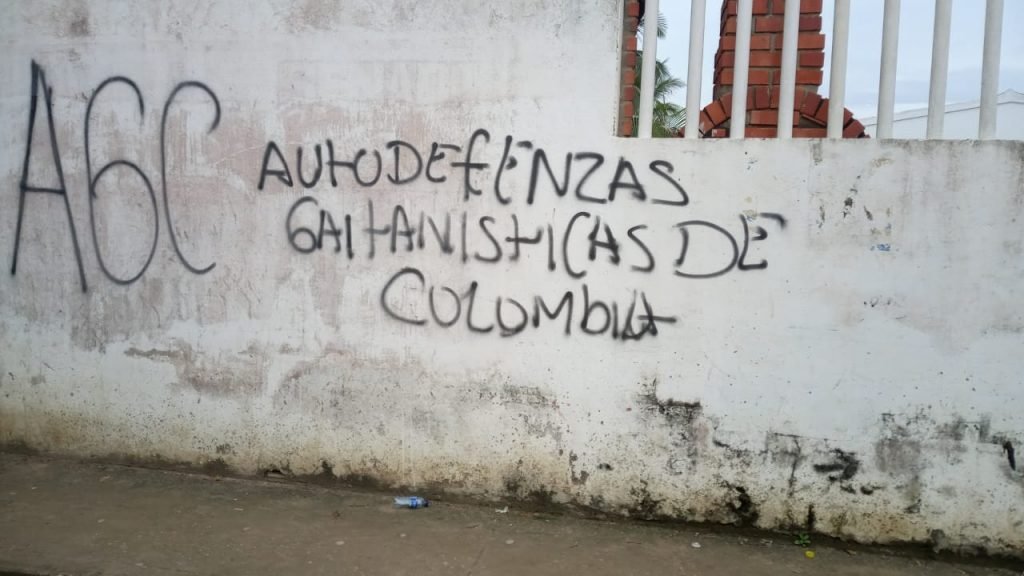 AGC
AUTODEFENZAS
GAITANISTICAS DE
COLOMBIA